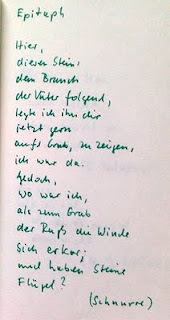 Epitaph
Hier,
diesen Stein,
dem Brauch
der Väter folgend,
legte ich ihn dir
jetzt gern
aufs Grab, zu zeigen,
ich war da.
Jedoch,
wo war ich,
als zum Grab
der Ruß die Winde
sich erkor;
und haben Steine
Flügel?
(Schnurre)